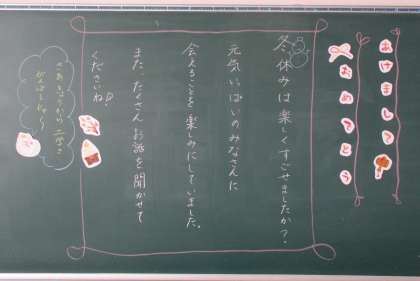 あけまして
おめでとう
冬休みは楽しくすごせましたか?
元気いっぱいのみなさんに
会えることを楽しみにしていました。
また、たくさんお話を聞かせて
くださいね
さあきょうから三学き
がんばろうね〜